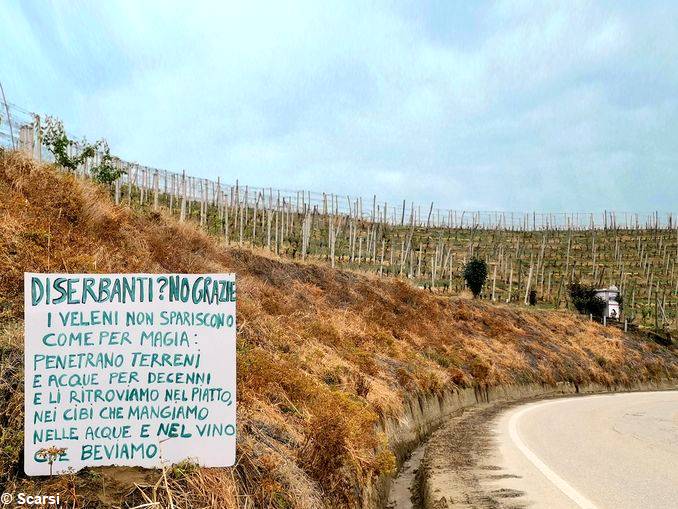 DISERBANTI? NO GRAZIE
I VELENI NON SPARISCONO
COME PER MAGIA:
PENETRANO TERRENI
E ACQUE PER DECENNI
E LI RITROVIAMO NEL PIATTO,
NEI CIBI CHE MANGIAMO
NELLE ACQUE E NEL VINO
CHE BEVIAMO.
© Scarsi